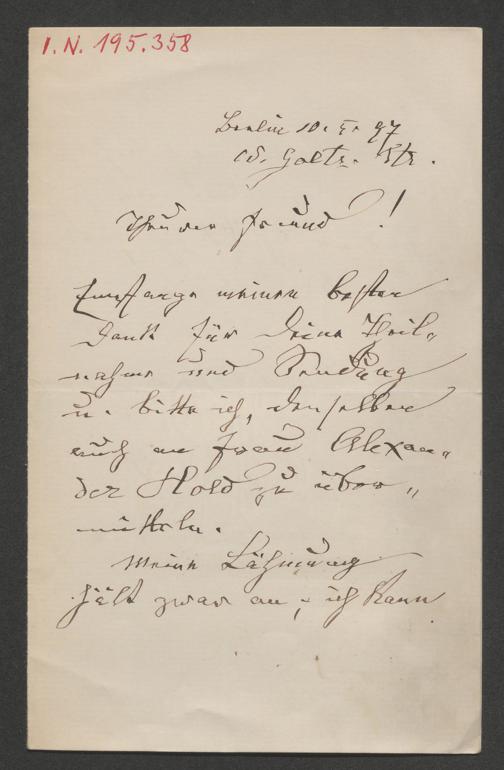 I.N. 195.358
Berlin 10. I. 97
Goltz Str.
Theurer Freund!
Empfange meinen besten
Dank für Deine Theil„
nahme und Sendung
u. bitte ich, denselben
auch an Frau Alexan„
der Hold zu über„
mitteln.
Meine Lähmung
hält zwar an, ich kann